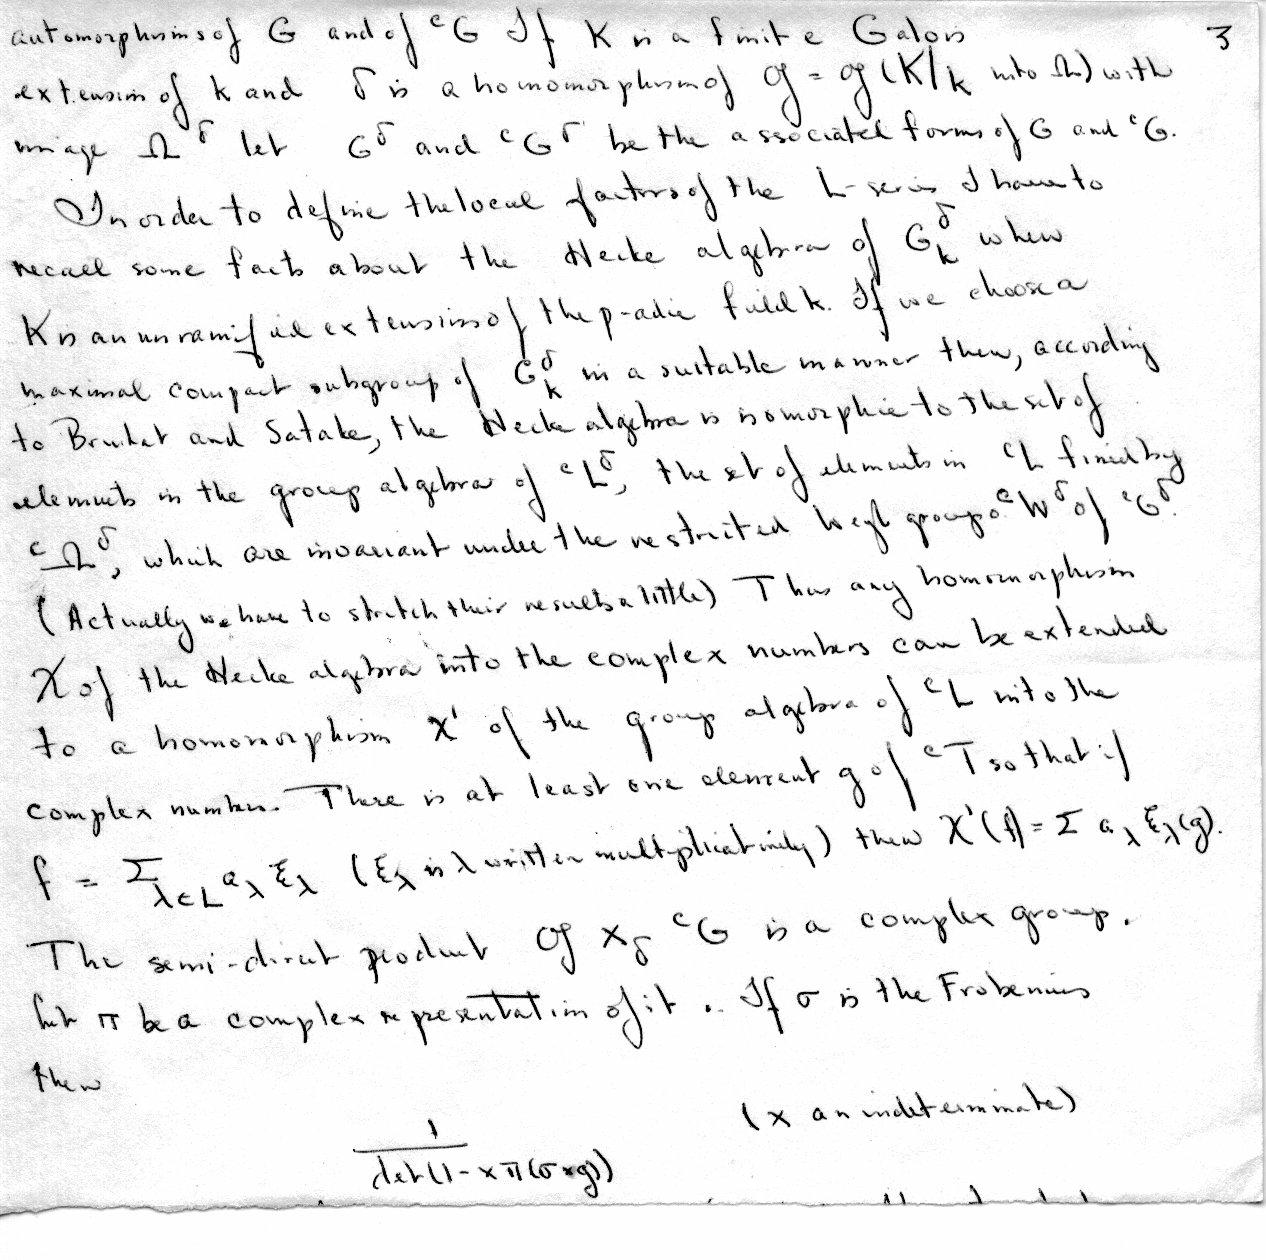 3
automorphisms of G and of ᶜG If K is a finite Galois
extension of k and δ is a homomorphism of 𝔤 = 𝔤(K/k into Ω) with
image Ω^δ let G^δ and ᶜG^δ be the associated forms of G and ᶜG.
In order to define the local factors of the L-series I have to
recall some facts about the Hecke algebra of G^δ_k when
K is an unramified extension of the p-adic field k. If we choose a
maximal compact subgroup of G^δ_k in a suitable manner then, according
to Bruhat and Satake, the Hecke algebra is isomorphic to the set of
elements in the group algebra of ᶜL^δ, the set of elements in ᶜL fixed by
ᶜΩ^δ, which are invariant under the restricted Weyl group ᶜW^δ of ᶜG^δ.
(Actually we have to stretch their results a little) Thus any homomorphism
χ of the Hecke algebra into the complex numbers can be extended
to a homomorphism χ' of the group algebra of ᶜL into the
complex numbers. There is at least one element g of ᶜT so that if
f = Σ_{λ∈L} a_λ ξ_λ (ξ_λ is λ written multiplicatively) then χ'(f) = Σ a_λ ξ_λ(g).
The semi-direct product 𝔤 ×_δ ᶜG is a complex group.
Let π be a complex representation of it. If σ is the Frobenius
then
(x an indeterminate)
1
det(1-xπ(σ×g))